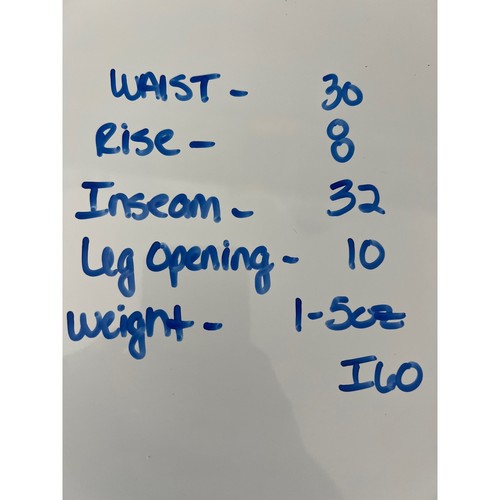 WAIST - 30
Rise - 8
Inseam - 32
Leg Opening - 10
Weight - 1-5oz
I60